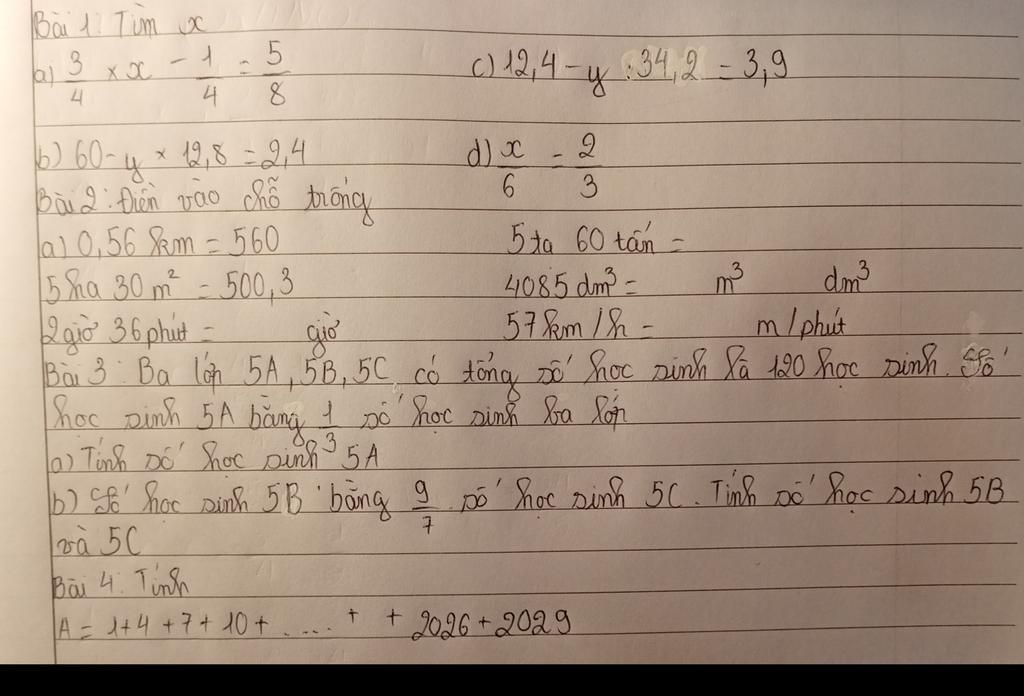 Bài 1: Tìm x
a) 3/4 × x - 1/4 = 5/8 c) 12,4 - y : 34,2 = 3,9
b) 60 - y × 12,8 = 2,4 d) x/6 = 2/3
Bài 2: Điền vào chỗ trống
a) 0,56 km = 560 5 tạ 60 tấn =
5 ha 30 m² = 500,3 4085 dm³ = m³ dm³
2 giờ 36 phút = giờ 57 km/h = m/phút
Bài 3: Ba lớp 5A, 5B, 5C có tổng số học sinh là 120 học sinh. Số
học sinh 5A bằng 1/3 số học sinh ba lớp
a) Tính số học sinh 5A
b) Số học sinh 5B bằng 9/7 số học sinh 5C. Tính số học sinh 5B
và 5C
Bài 4: Tính
A = 1+4+7+10+ ..... + + 2026 + 2029